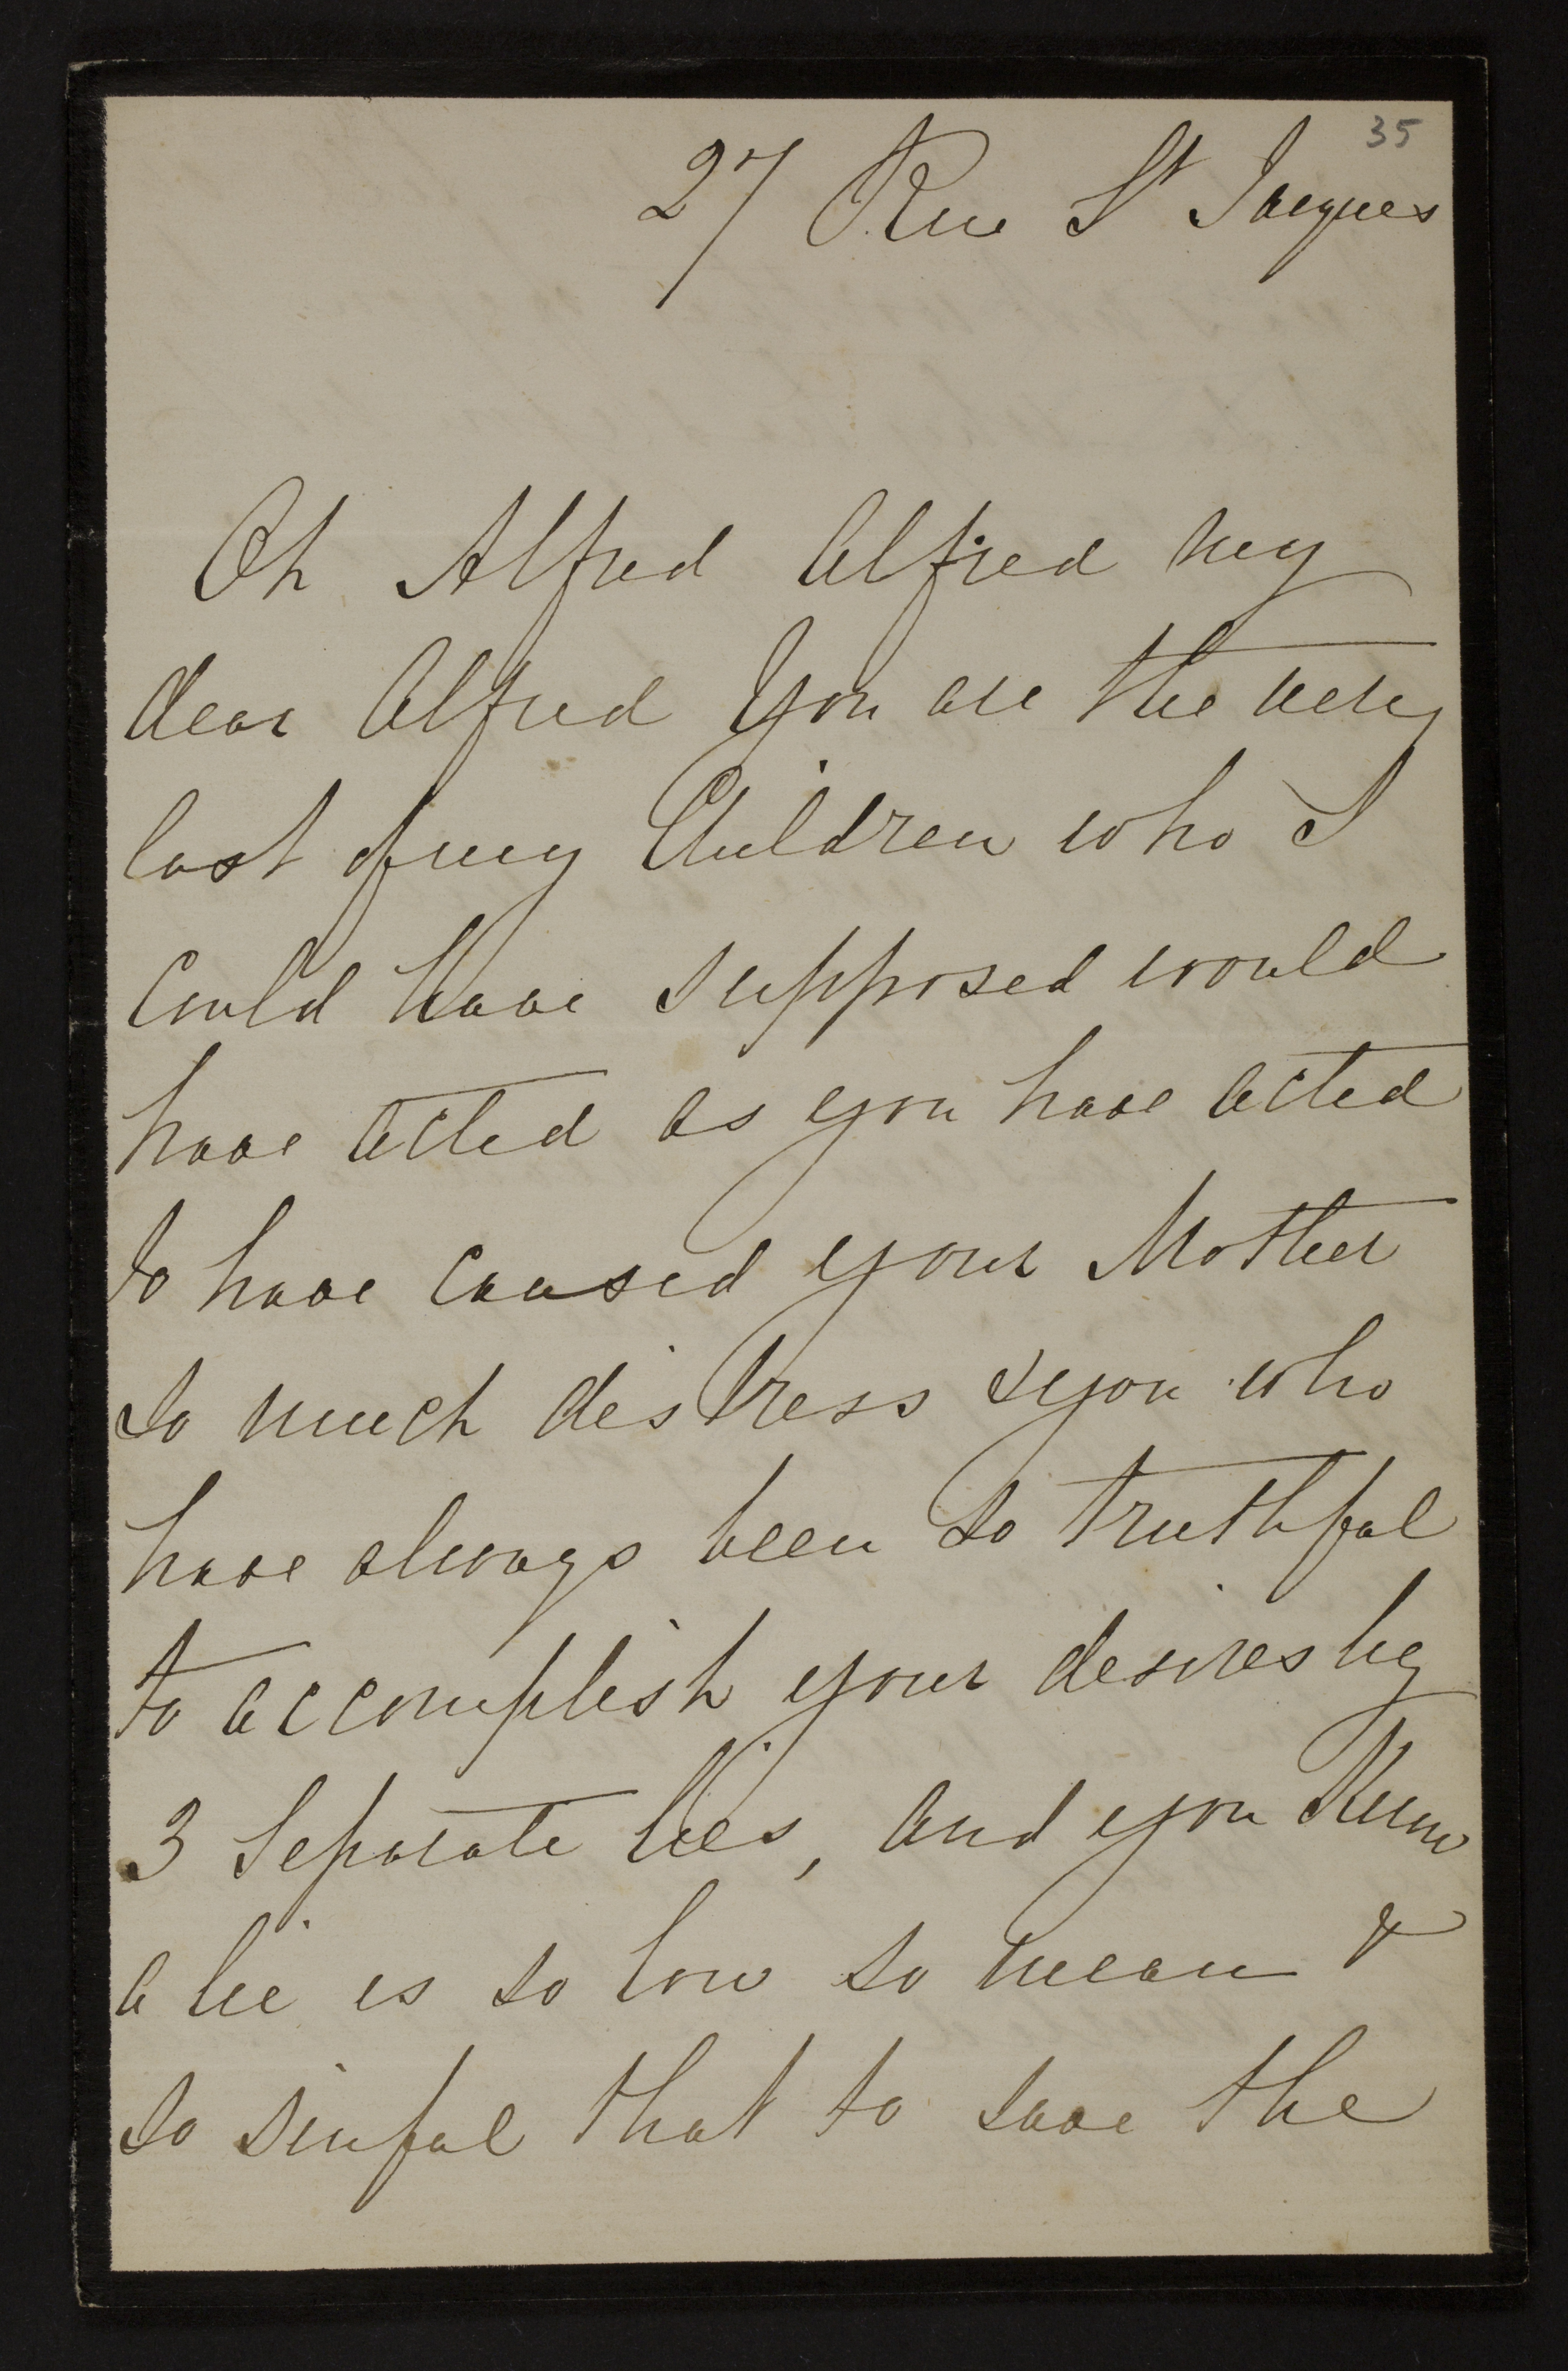 35
27 Rue St Jacques
Oh Alfred Alfred my
dear Alfred you are the very
last of my Children who I
Could have supposed would
have acted as you have acted
to have caused your Mother
so much distress & you who
have always been so truthful
to accomplish your desires by
3 Separate lies, and you Know
a lie is so low so mean &
so sinful that to save the